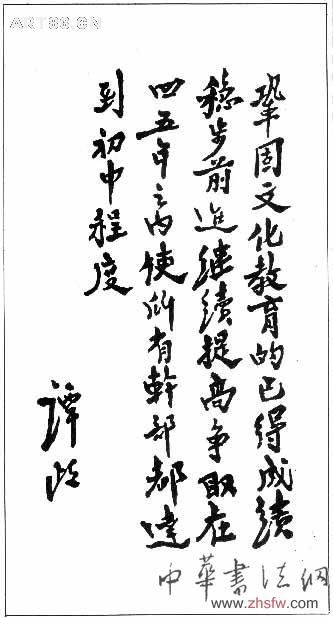 ART86.CN
巩固文化教育的已得成績
稳步前进继续提高争取在
四五年之内使所有幹部都達
到初中程度
譚政
中華書法網
www.zhsfw.com